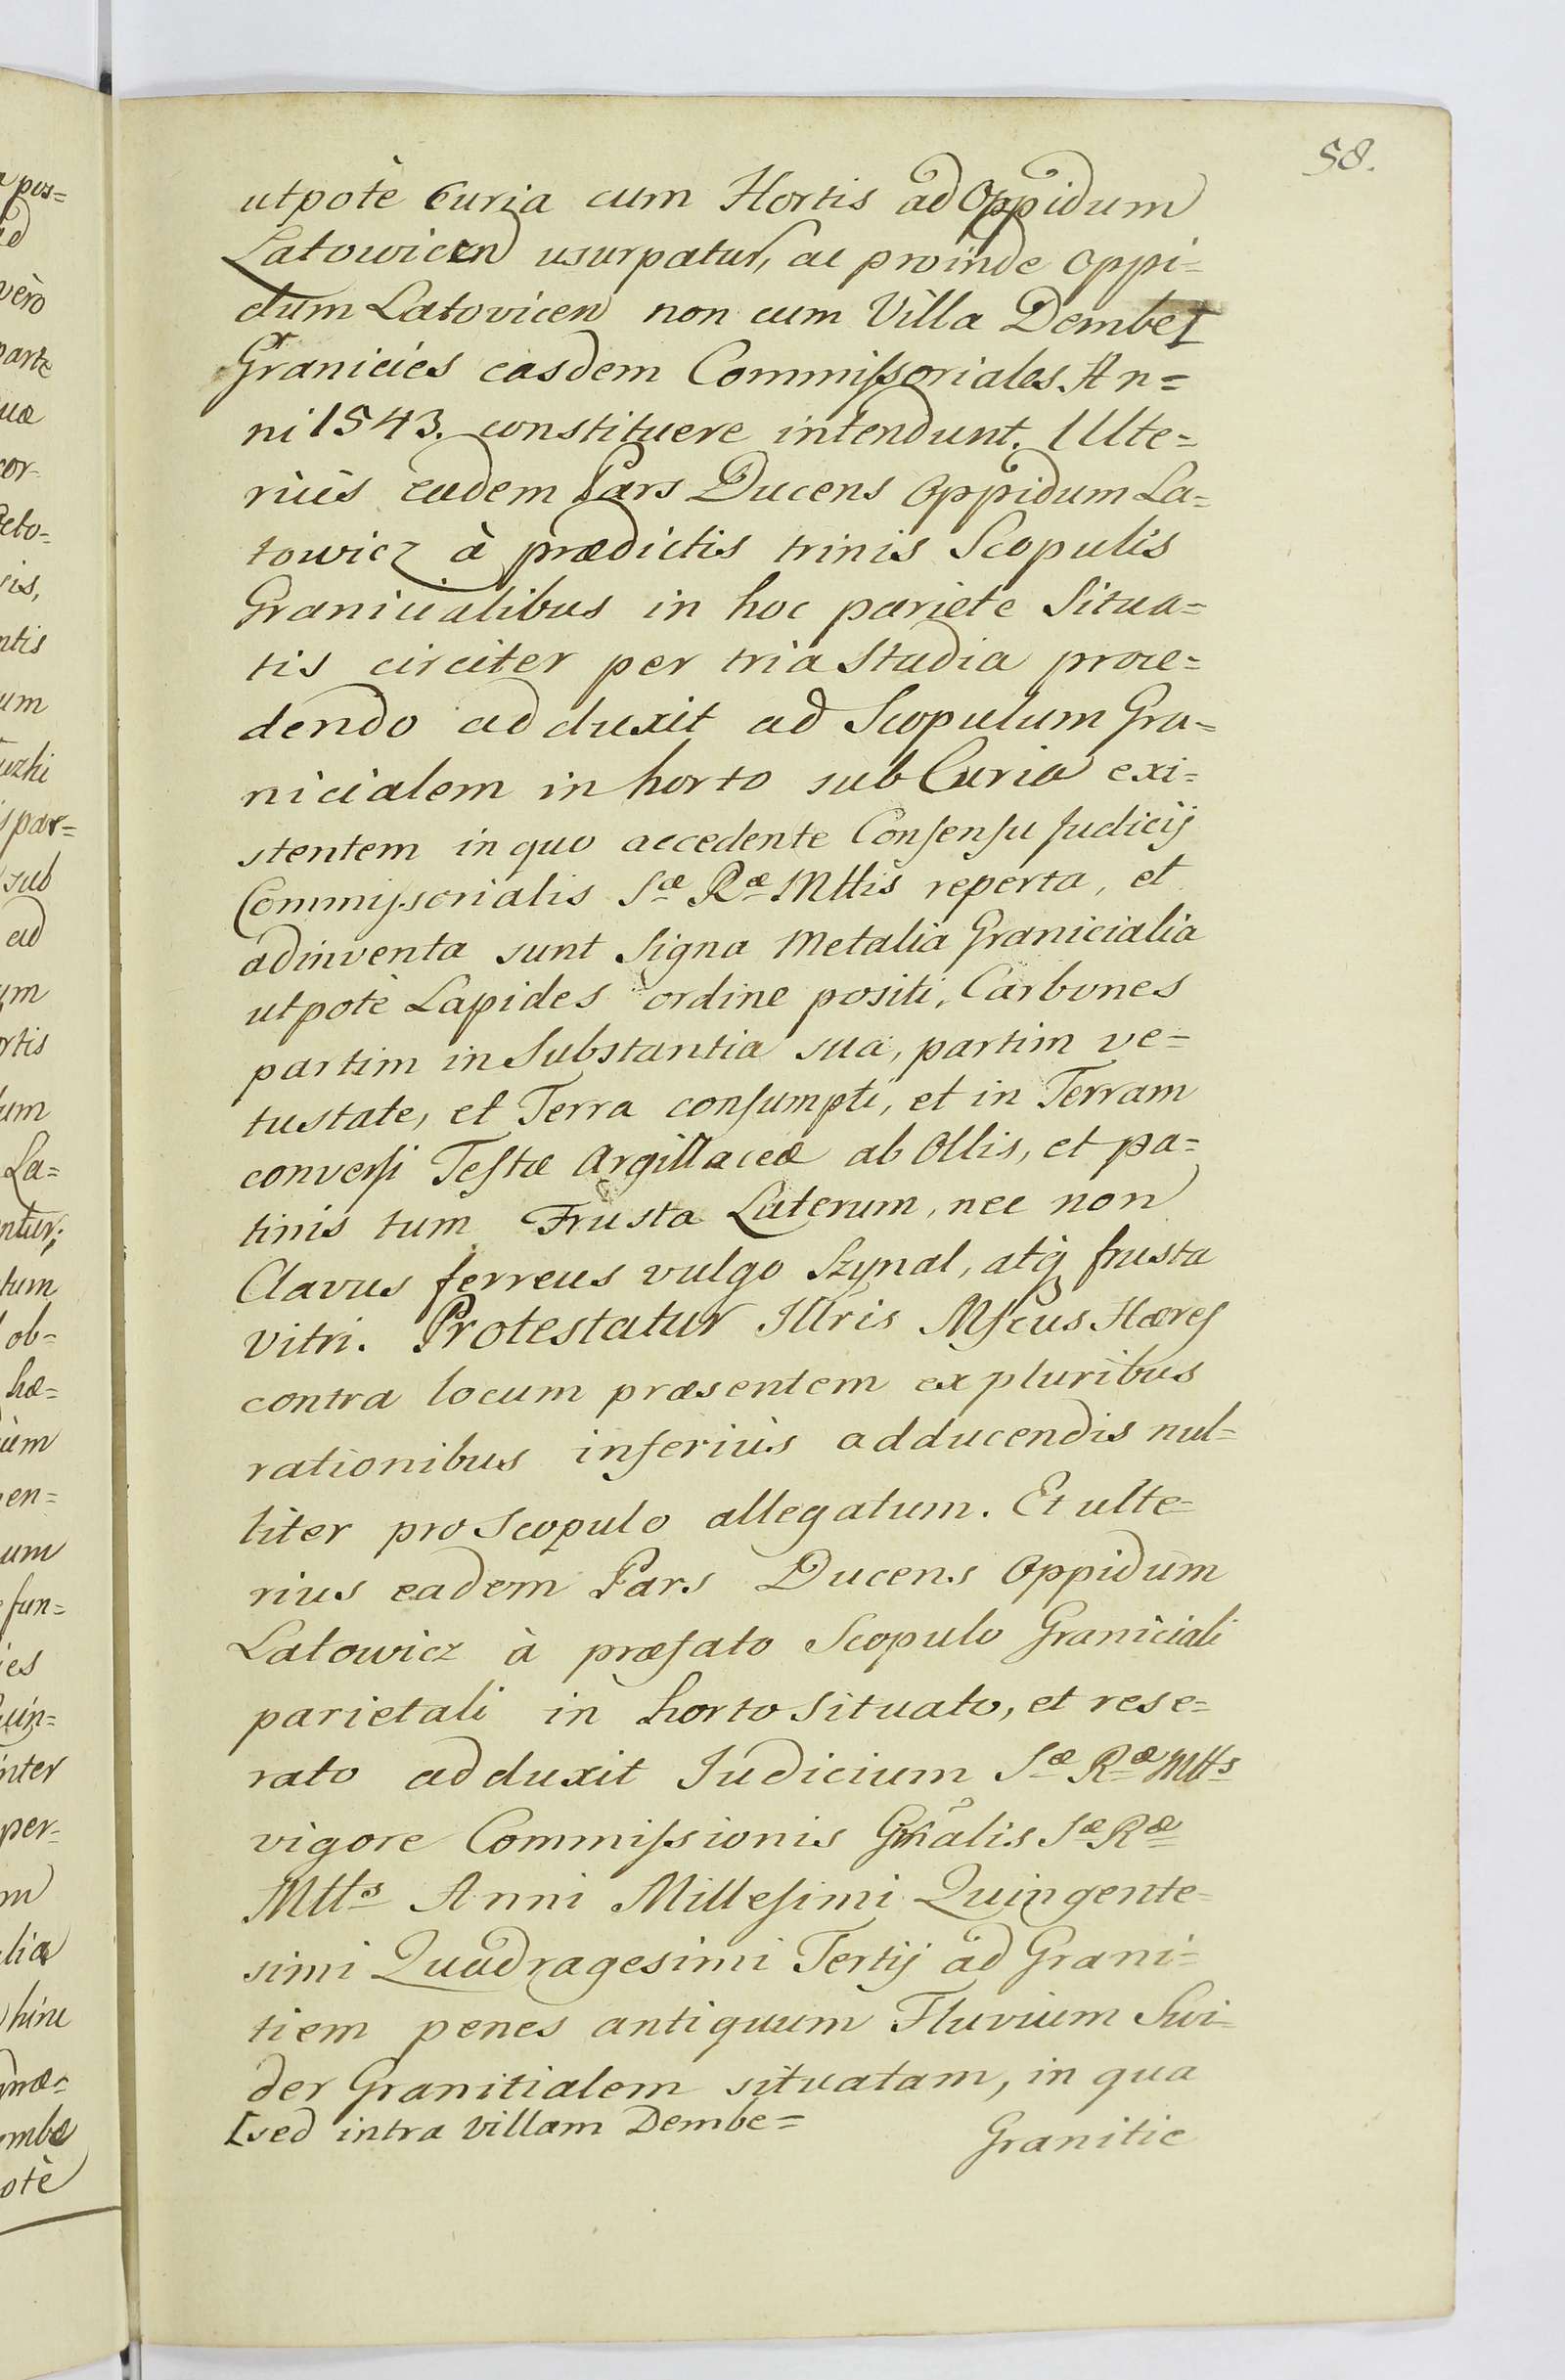 58.
utpotè Curia cum Hortis ad Oppidum
Latowicen usurpatur, ac proinde Oppi=
dum Latovicen non cum Villa Dembe[
Granicies easdem Commissoriales An=
ni 1543. constituere intendunt. Ulte=
riùs eadem Pars Ducens Oppidum La=
towicz à prædictis trinis Scopulis
Granicialibus in hoc pariete Situa=
tis circiter per tria Studia proce=
dendo adduxit ad Scopulum Gra=
nicialem in horto sub Curia exi=
stentem in quo accedente Consensu Judicij
Commissorialis Sæ Ræ Mttis reperta, et
adinventa sunt Signa Metalia Granicialia
utpotè Lapides ordine positi, Carbones
partim in Substantia sua, partim ve=
tustate, et Terra consumpti, et in Terram
conversi Testæ Argillaceæ ab Ollis, et pa=
tinis tum Frusta Laterum, nec non
Clavus ferreus vulgo Szynal, atq frusta
vitri. Protestatur Illris Mfcus Hæres
contra locum præsentem ex pluribus
rationibus inferiùs adducendis nul=
liter pro Scopulo allegatum. Et ulte=
rius eadem Pars Ducens Oppidum
Latowicz à præfato Scopulo Graniciali
parietali in horto Situato, et rese=
rato adduxit Judicium Sæ Ræ Mtts
vigore Commissionis Gnalis Sæ Ræ
Mtts Anni Millesimi Quingente=
simi Quadragesimi Tertij ad Grani=
tiem penes antiquum Fluvium Swi=
der Granitialem situatam, in qua
[sed intra Villam Dembe=
Granitie
pos=
vèro
parte
cor=
ntis
um
par=
sub
ad
La=
ob=
hæ=
fun=
inter
per=
hinc
otè